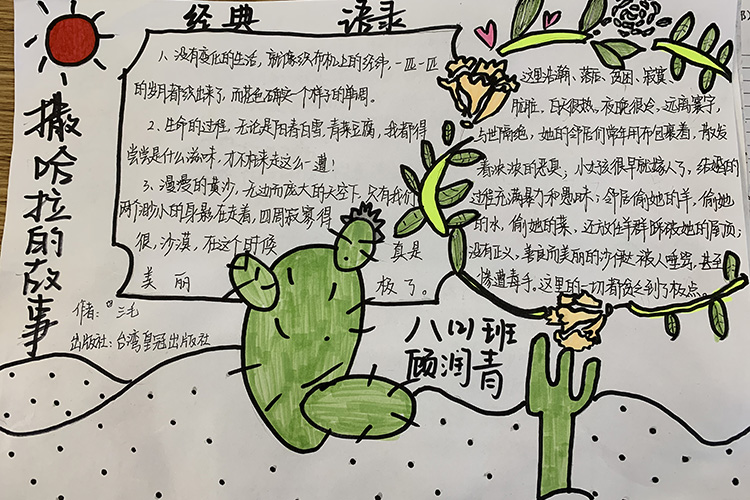 经典 语录
撒哈拉的故事
1、没有变化的生活,就像织布机上的经纬,一匹一匹
的岁月都织出来了,而花色确实一个样子的单调。
2、生命的过程,无论是阳春白雪,青菜豆腐,我都得
尝尝是什么滋味,才不枉来走这么一遭!
3、漫漫的黄沙,无边而庞大的天空下,只有我们
两个渺小的身影在走着,四周寂寥得
很,沙漠,在这个时候 真是
美丽 极了。
作者:三毛
出版社:台湾皇冠出版社
这里浩瀚、落后、贫困、寂寞、
肮脏。白天很热,夜晚很冷。远离寰宇,
与世隔绝,她的邻居们常年用布包裹着,散发
着浓浓的恶臭;小女孩很早就嫁人了,结婚的
过程充满暴力和愚昧;邻居偷她的羊,偷她
的水,偷她的菜,还放任羊群踩破她的屋顶;
没有正义,善良而美丽的沙伊达被人唾骂,甚至
惨遭毒手。这里的一切都贫乏到了极点。
八(2)班
顾润青